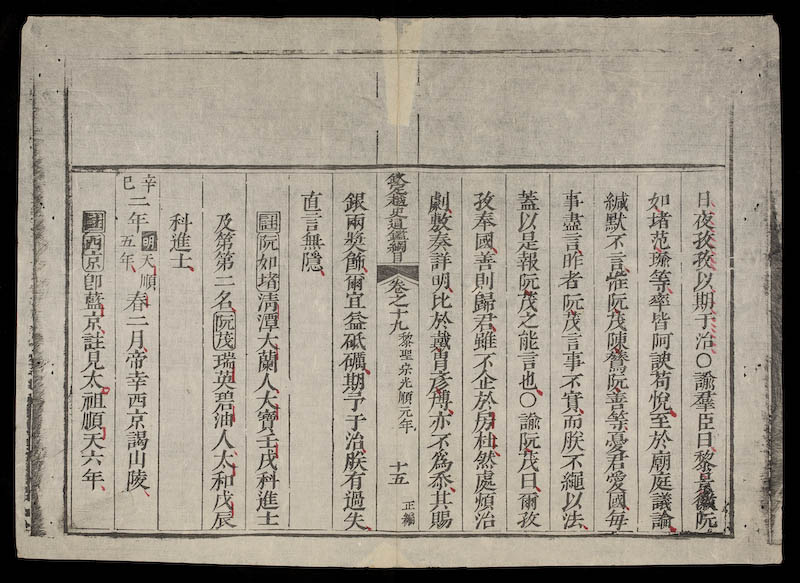 日夜孜孜以期于治〇諭羣臣曰黎景徽阮
如堵范璠等率皆阿諛苟悅至於廟庭議論
緘默不言惟阮茂陳鷟阮善等憂君愛國每
事盡言昨者阮茂言事不實而朕不繩以法
蓋以是報阮茂之能言也〇諭阮茂曰爾孜
孜奉國善則歸君雖不企於房杜然處煩治
劇敷奏詳明比於戴胄彥博亦不爲忝其賜
欽定越史通鑑綱目 卷之十九 黎聖宗光順元年 十五 正編
銀兩奬飾爾宜益砥礪期予于治朕有過失
直言無隱
註阮如堵淸潭大蘭人大寶壬戌科進士
及第第二名阮茂瑞英碧油人太和戊辰
科進士
辛巳二年明天順五年春二月帝幸西京謁山陵
註西京卽藍京註見太祖順天六年